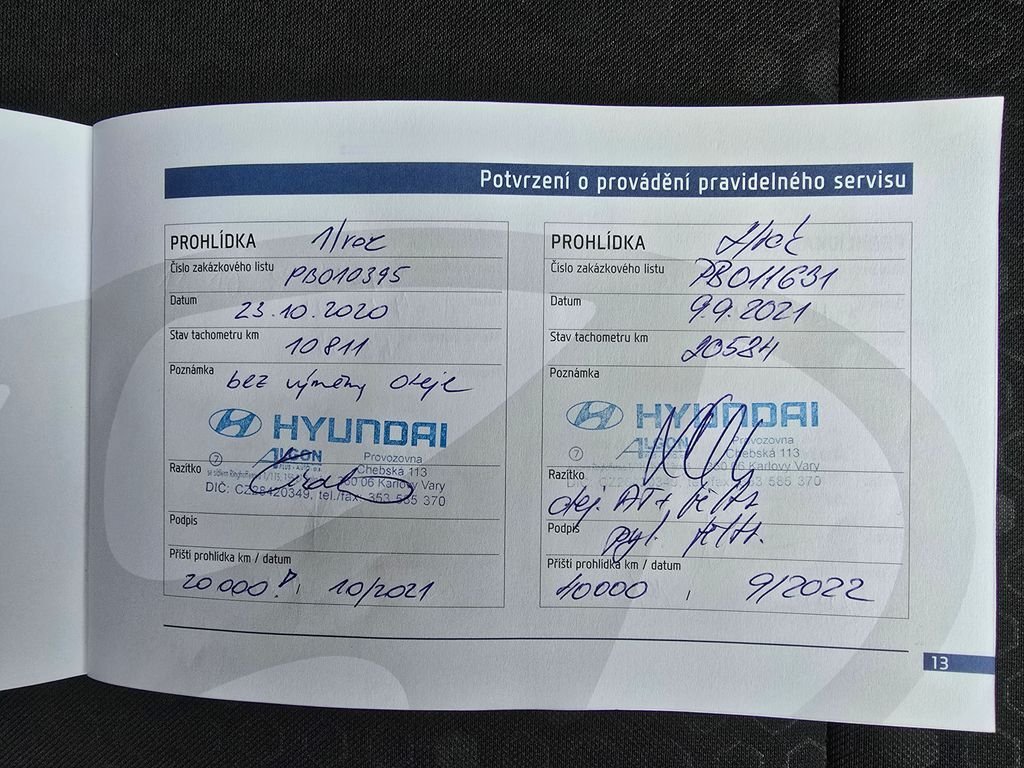 Potvrzení o provádění pravidelného servisu
PROHLÍDKA 1/rok
Číslo zakázkového listu PB010395
Datum 23.10.2020
Stav tachometru km 10811
Poznámka bez výměny oleje
HYUNDAI
7 ALGON Provozovna
PLUS - AUTO a.s. Chebská 113
Razítko 360 06 Karlovy Vary
DIČ: CZ28420349, tel./fax: 353 585 370
Podpis
Příští prohlídka km / datum
20 000! , 10/2021
PROHLÍDKA 2/rok
Číslo zakázkového listu PB011631
Datum 9.9.2021
Stav tachometru km 20584
Poznámka
HYUNDAI
7 ALGON Provozovna
Chebská 113
Razítko 06 Karlovy Vary
353 585 370
olej. AT+, filtr
Podpis pyl. filtr.
Příští prohlídka km / datum
40000 , 9/2022
13